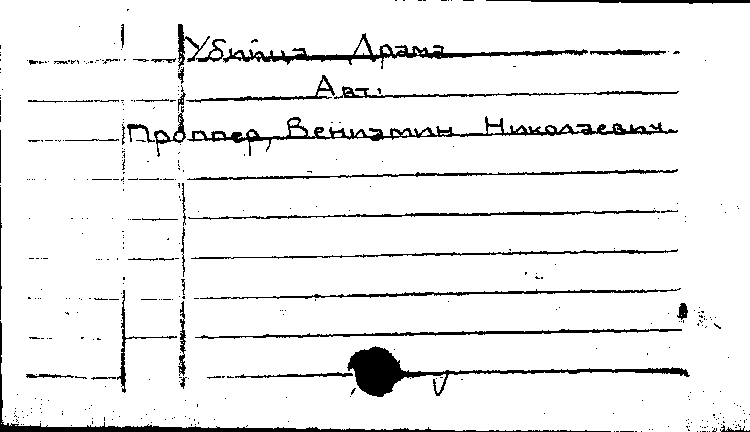 Убийца Драма
Авт.
Проппер, Вениамин Николаевич.